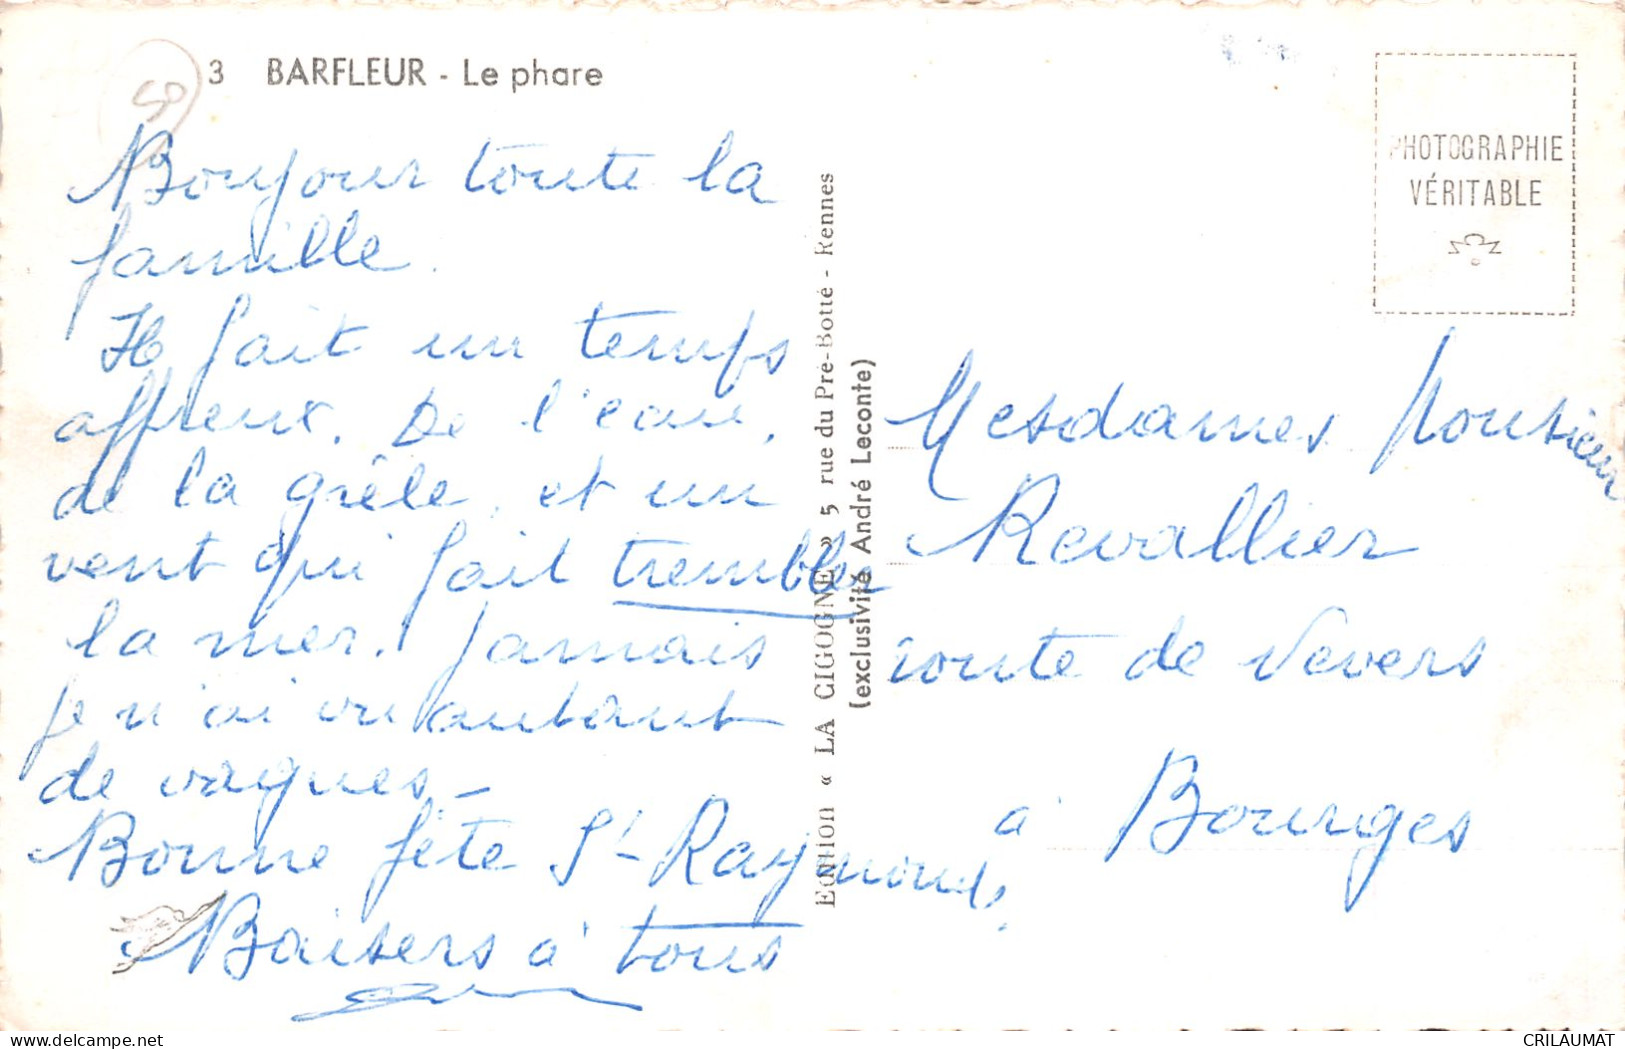 50
3 BARFLEUR - Le phare
Bonjour toute la
famille.
Il fait un temps
affreux. De l'eau,
de la grêle, et un
vent qui fait trembler
la mer. Jamais
je n'ai vu autant
de vagues -
Bonne fête St-Raymond.
Baisers à tous
Edition « LA CIGOGNE » 5 rue du Pré-Botté - Rennes
(exclusivité André Leconte)
PHOTOGRAPHIE
VÉRITABLE
Mesdames Monsieur
Revallier
route de Nevers
à Bourges
CRILAUMAT